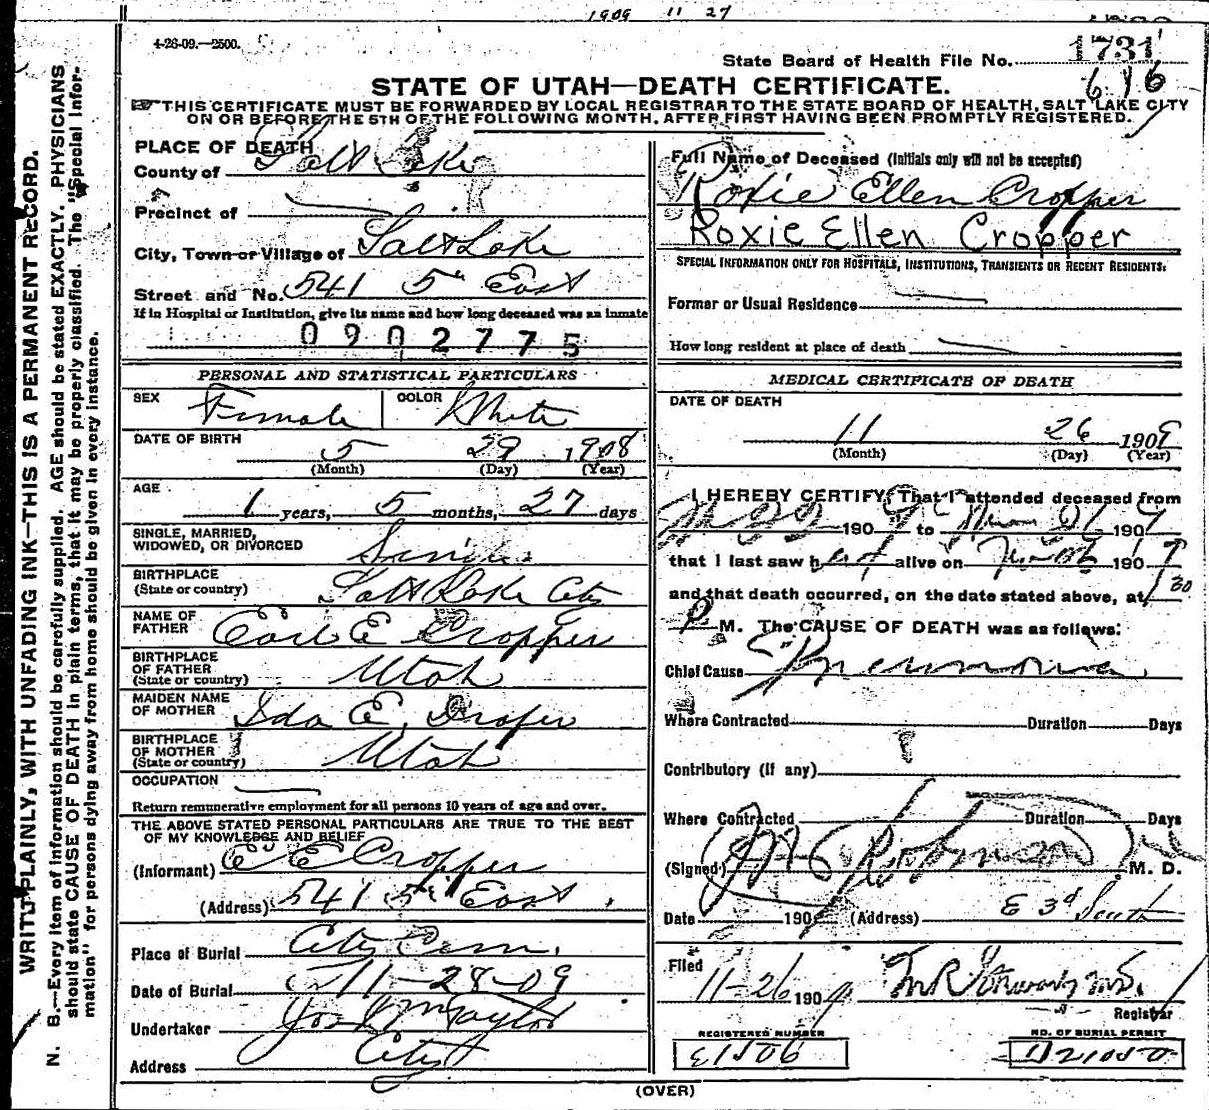 1909 11 27
4-26-09.—2500.
State Board of Health File No. 1731
616
STATE OF UTAH—DEATH CERTIFICATE.
THIS CERTIFICATE MUST BE FORWARDED BY LOCAL REGISTRAR TO THE STATE BOARD OF HEALTH, SALT LAKE CITY
ON OR BEFORE THE 5TH OF THE FOLLOWING MONTH, AFTER FIRST HAVING BEEN PROMPTLY REGISTERED.
WRITE PLAINLY, WITH UNFADING INK—THIS IS A PERMANENT RECORD.
N. B.—Every item of Information should be carefully supplied. AGE should be stated EXACTLY. PHYSICIANS
should state CAUSE OF DEATH in plain terms, that it may be properly classified. The "Special Infor-
mation" for persons dying away from home should be given in every instance.
PLACE OF DEATH
County of Salt Lake
Precinct of
City, Town or Village of Salt Lake
Street and No. 541 5th East
If in Hospital or Institution, give its name and how long deceased was an inmate
0902775
PERSONAL AND STATISTICAL PARTICULARS
SEX Female COLOR White
DATE OF BIRTH
5 29 1908
(Month) (Day) (Year)
AGE
1 years, 5 months, 27 days
SINGLE, MARRIED,
WIDOWED, OR DIVORCED Single
BIRTHPLACE
(State or country) Salt Lake City
NAME OF
FATHER Earl E Cropper
BIRTHPLACE
OF FATHER
(State or country) Utah
MAIDEN NAME
OF MOTHER Ida E. Draper
BIRTHPLACE
OF MOTHER
(State or country) Utah
OCCUPATION
Return remunerative employment for all persons 10 years of age and over.
THE ABOVE STATED PERSONAL PARTICULARS ARE TRUE TO THE BEST
OF MY KNOWLEDGE AND BELIEF
(Informant) E E Cropper
(Address) 541 5th East
Place of Burial City Cem.
Date of Burial 11-28-09
Undertaker Jos Wm Taylor
Address City
Full Name of Deceased (Initials only will not be accepted)
Roxie Ellen Cropper
Roxie Ellen Cropper
SPECIAL INFORMATION ONLY FOR HOSPITALS, INSTITUTIONS, TRANSIENTS OR RECENT RESIDENTS:
Former or Usual Residence
How long resident at place of death
MEDICAL CERTIFICATE OF DEATH
DATE OF DEATH
11 26 1909
(Month) (Day) (Year)
I HEREBY CERTIFY, That I attended deceased from
190 9 to 190 9
that I last saw her alive on 190 9
and that death occurred, on the date stated above, at 1 30
P M. The CAUSE OF DEATH was as follows:
Chief Cause Pneumonia
Where Contracted Duration Days
Contributory (If any)
Where Contracted Duration Days
(Signed) Robinson M. D.
Date 190 (Address) E 3d South
Filed 11-26 190 9
Registrar
REGISTERED NUMBER
E1506
NO. OF BURIAL PERMIT
(OVER)